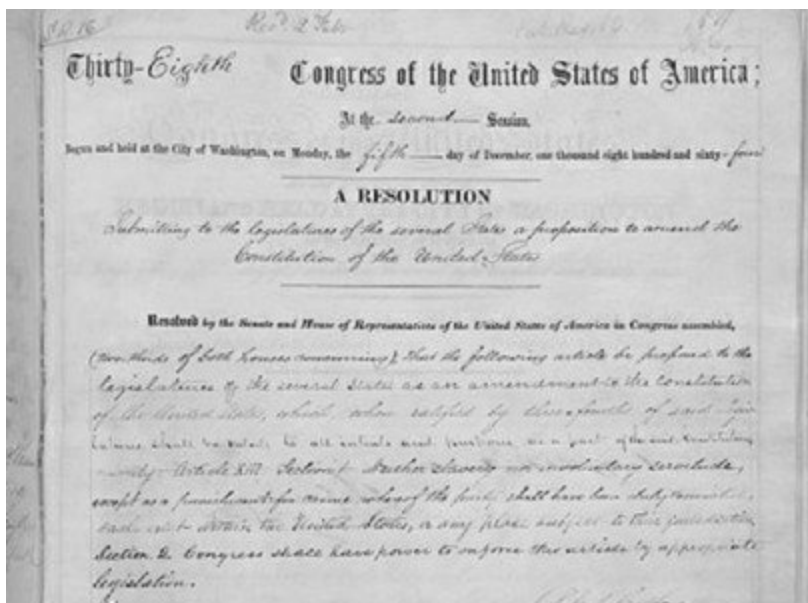 S. R. 16
Recd. 2 Feb
Thirty-Eighth Congress of the United States of America;
At the second Session,
Begun and held at the City of Washington, on Monday, the fifth day of December, one thousand eight hundred and sixty-four
A RESOLUTION
Submitting to the legislatures of the several States a proposition to amend the
Constitution of the United States
Resolved by the Senate and House of Representatives of the United States of America in Congress assembled,
(two thirds of both houses concurring), That the following article be proposed to the
legislatures of the several States as an amendment to the constitution
of the United States, which, when ratified by three-fourths of said
shall be valid, to all intents and purposes, as a part of the said Constitution
namely: Article XIII. Section 1. Neither slavery nor involuntary servitude,
except as a punishment for crime whereof the party shall have been duly convicted,
shall exist within the United States, or any place subject to their jurisdiction.
Section 2. Congress shall have power to enforce this article by appropriate
legislation.